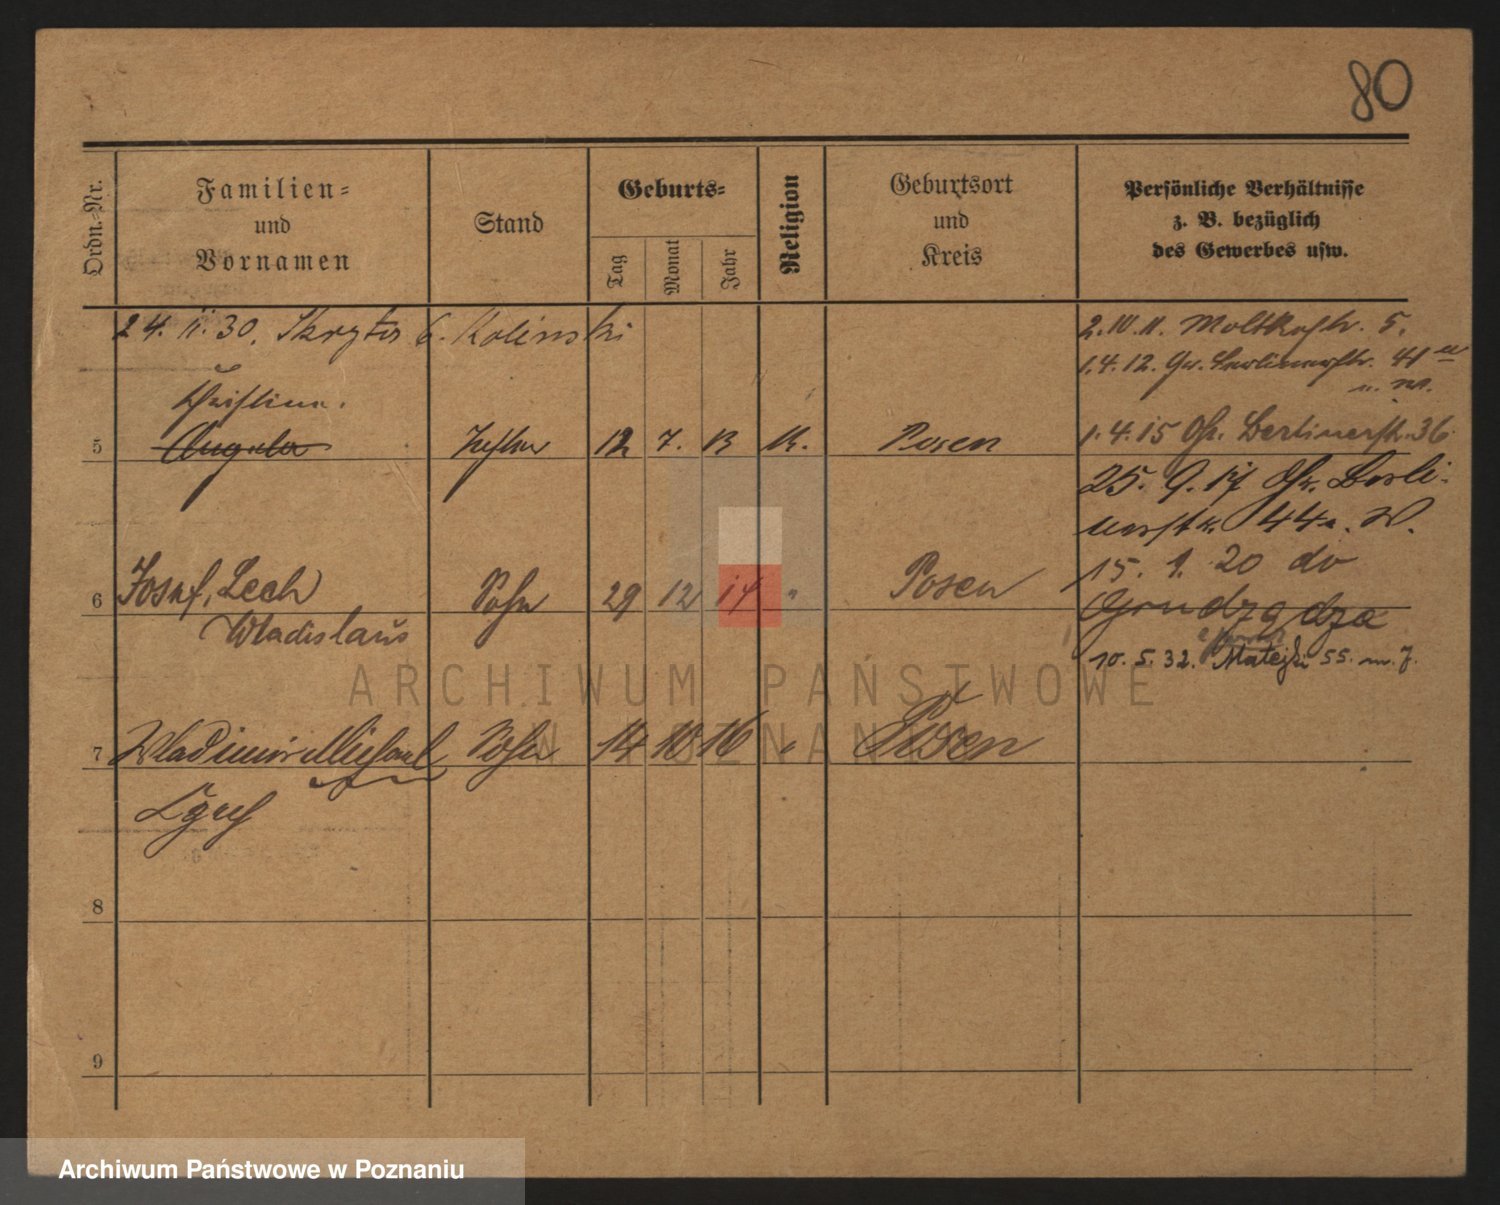 80
Ordn.-Nr.
Familien-
und
Vornamen
Stand
Geburts-
Tag
Monat
Jahr
Religion
Geburtsort
und
Kreis
Persönliche Verhältnisse
z. B. bezüglich
des Gewerbes usw.
24. 11. 30. Skryta 6. Kolinski
2.10.11. Moltkestr. 5.
1.4.12. Gr. Berlinerstr. 44
u. W.
Christine.
5 Angela Tochter 12 7. 13 K. Posen 1.4.15 Gr. Berlinerstr. 36
25. 9. 17 Gr. Berli-
nerstr. 44a. W.
15. 1. 20 do
6 Josef, Lech Sohn 29 12 14 " Posen
Wladislaus
Grudządza
10. 5. 32. Matejki 55. m. 7.
7 Wladimir Michael Sohn 14 10 16 " Posen
8
9
ARCHIWUM PAŃSTWOWE
W POZNANIU
Archiwum Państwowe w Poznaniu